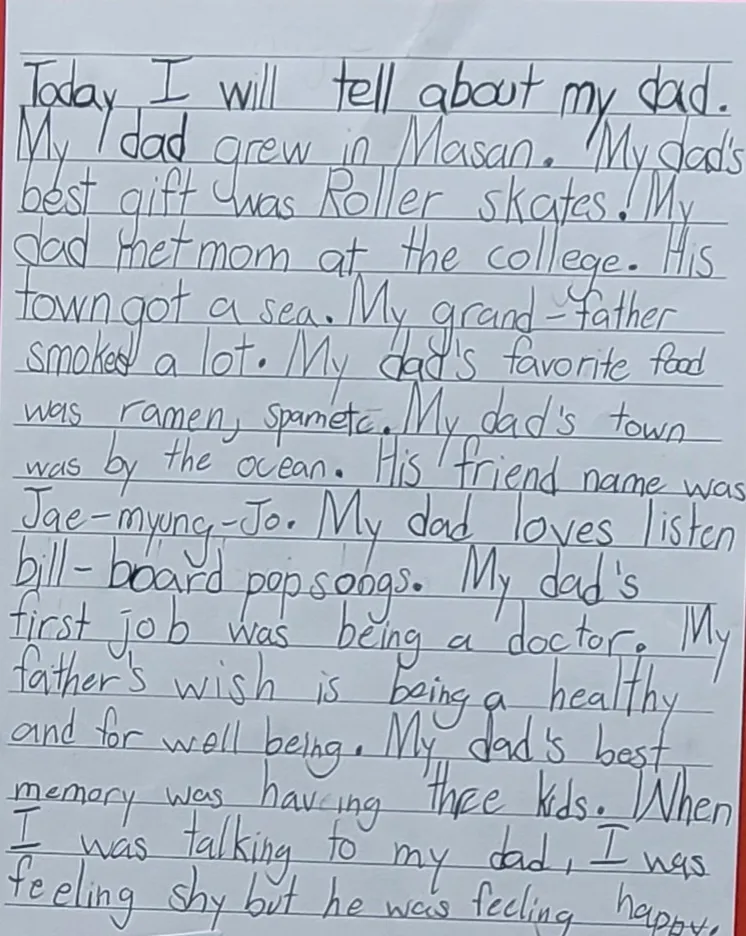 Today I will tell about my dad.
My dad grew in Masan. My dad's
best gift was Roller skates! My
dad met mom at the college. His
town got a sea. My grand-father
smoked a lot. My dad's favorite food
was ramen, spam etc. My dad's town
was by the ocean. His friend name was
Jae-myung-Jo. My dad loves listen
bill-board pop songs. My dad's
first job was being a doctor. My
father's wish is being a healthy
and for well being. My dad's best
memory was having three kids. When
I was talking to my dad, I was
feeling shy but he was feeling happy.